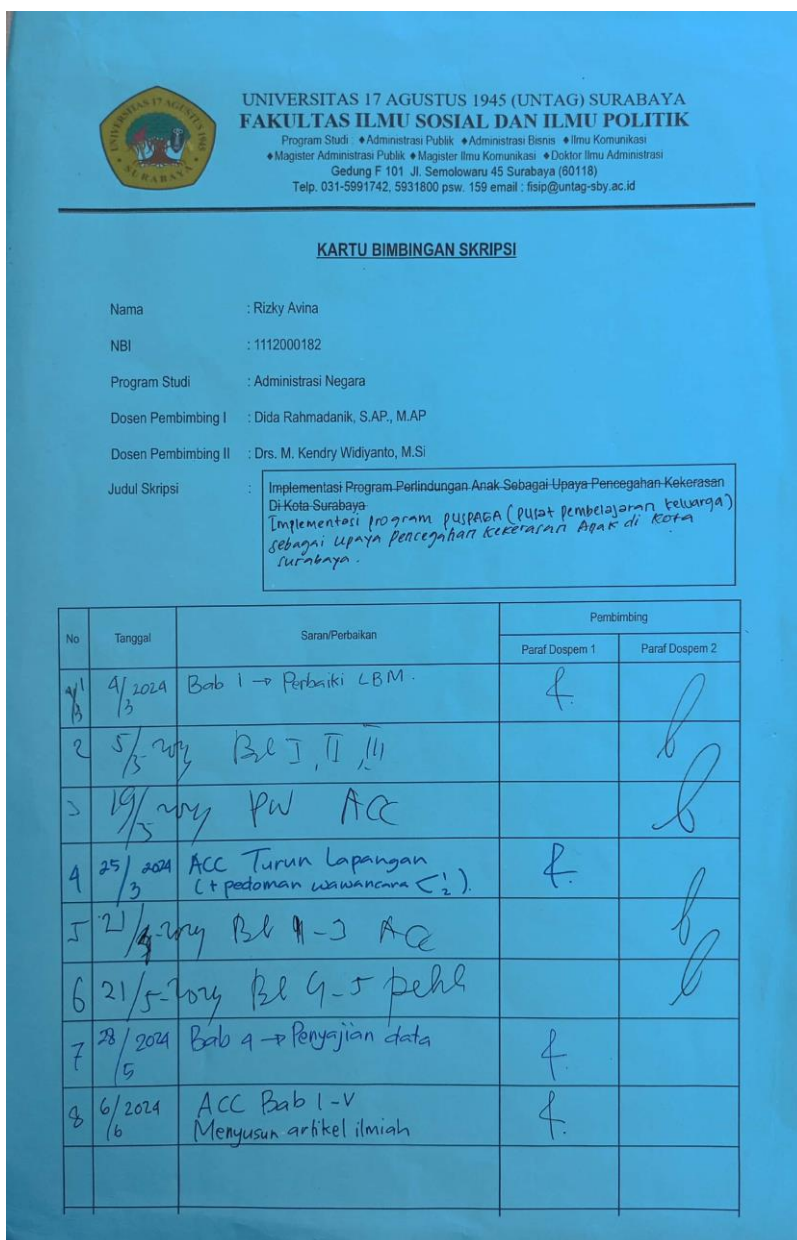 UNIVERSITAS 17 AGUSTUS 1945
SURABAYA
UNIVERSITAS 17 AGUSTUS 1945 (UNTAG) SURABAYA
FAKULTAS ILMU SOSIAL DAN ILMU POLITIK
Program Studi : ♦Administrasi Publik ♦Administrasi Bisnis ♦Ilmu Komunikasi
♦Magister Administrasi Publik ♦Magister Ilmu Komunikasi ♦Doktor Ilmu Administrasi
Gedung F 101 Jl. Semolowaru 45 Surabaya (60118)
Telp. 031-5991742, 5931800 psw. 159 email : fisip@untag-sby.ac.id
KARTU BIMBINGAN SKRIPSI
Nama : Rizky Avina
NBI : 1112000182
Program Studi : Administrasi Negara
Dosen Pembimbing I : Dida Rahmadanik, S.AP., M.AP
Dosen Pembimbing II : Drs. M. Kendry Widiyanto, M.Si
Judul Skripsi : Implementasi Program Perlindungan Anak Sebagai Upaya Pencegahan Kekerasan
Di Kota Surabaya
Implementasi program PUSPAGA (pusat pembelajaran keluarga)
sebagai upaya pencegahan kekerasan Anak di Kota
surabaya.
No Tanggal Saran/Perbaikan Pembimbing
Paraf Dospem 1 Paraf Dospem 2
4/3 2024 Bab 1 → Perbaiki LBM.
2 5/3-2024 I, II, III
3 19/3-2024 PW ACC
4 25/3 2024 ACC Turun Lapangan
(+ pedoman wawancara < 1 2 ).
5 21/ -2024 1-3 ACC
6 21/5-2024 4-5
7 28/5 2024 Bab 4 → Penyajian data
8 6/6 2024 ACC Bab I-V
Menyusun artikel ilmiah